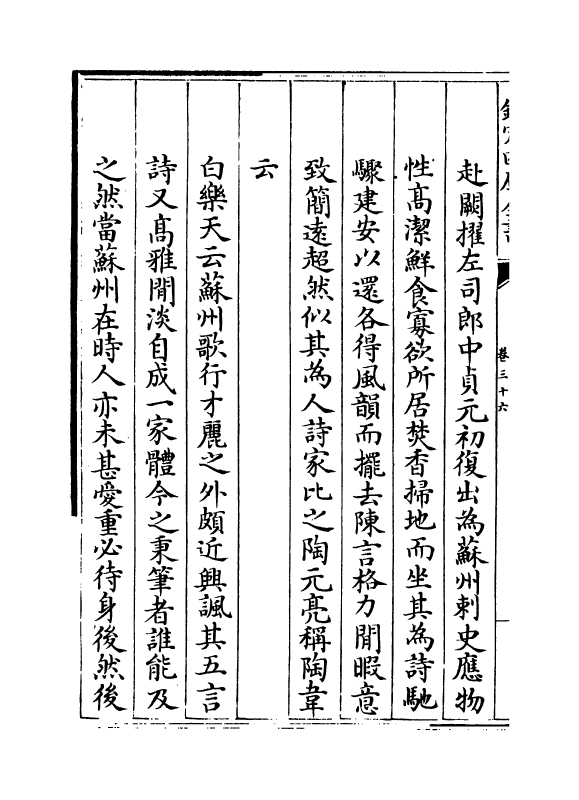 欽定四庫全書
卷三十六
赴闕擢左司郎中貞元初復出為蘇州刺史應物
性髙潔鮮食寡欲所居焚香掃地而坐其為詩馳
驟建安以還各得風韻而擺去陳言格力閒暇意
致簡逺超然似其為人詩家比之陶元亮稱陶韋
云
白樂天云蘇州歌行才麗之外頗近興諷其五言
詩又髙雅閒淡自成一家體今之秉筆者誰能及
之然當蘇州在時人亦未甚愛重必待身後然後